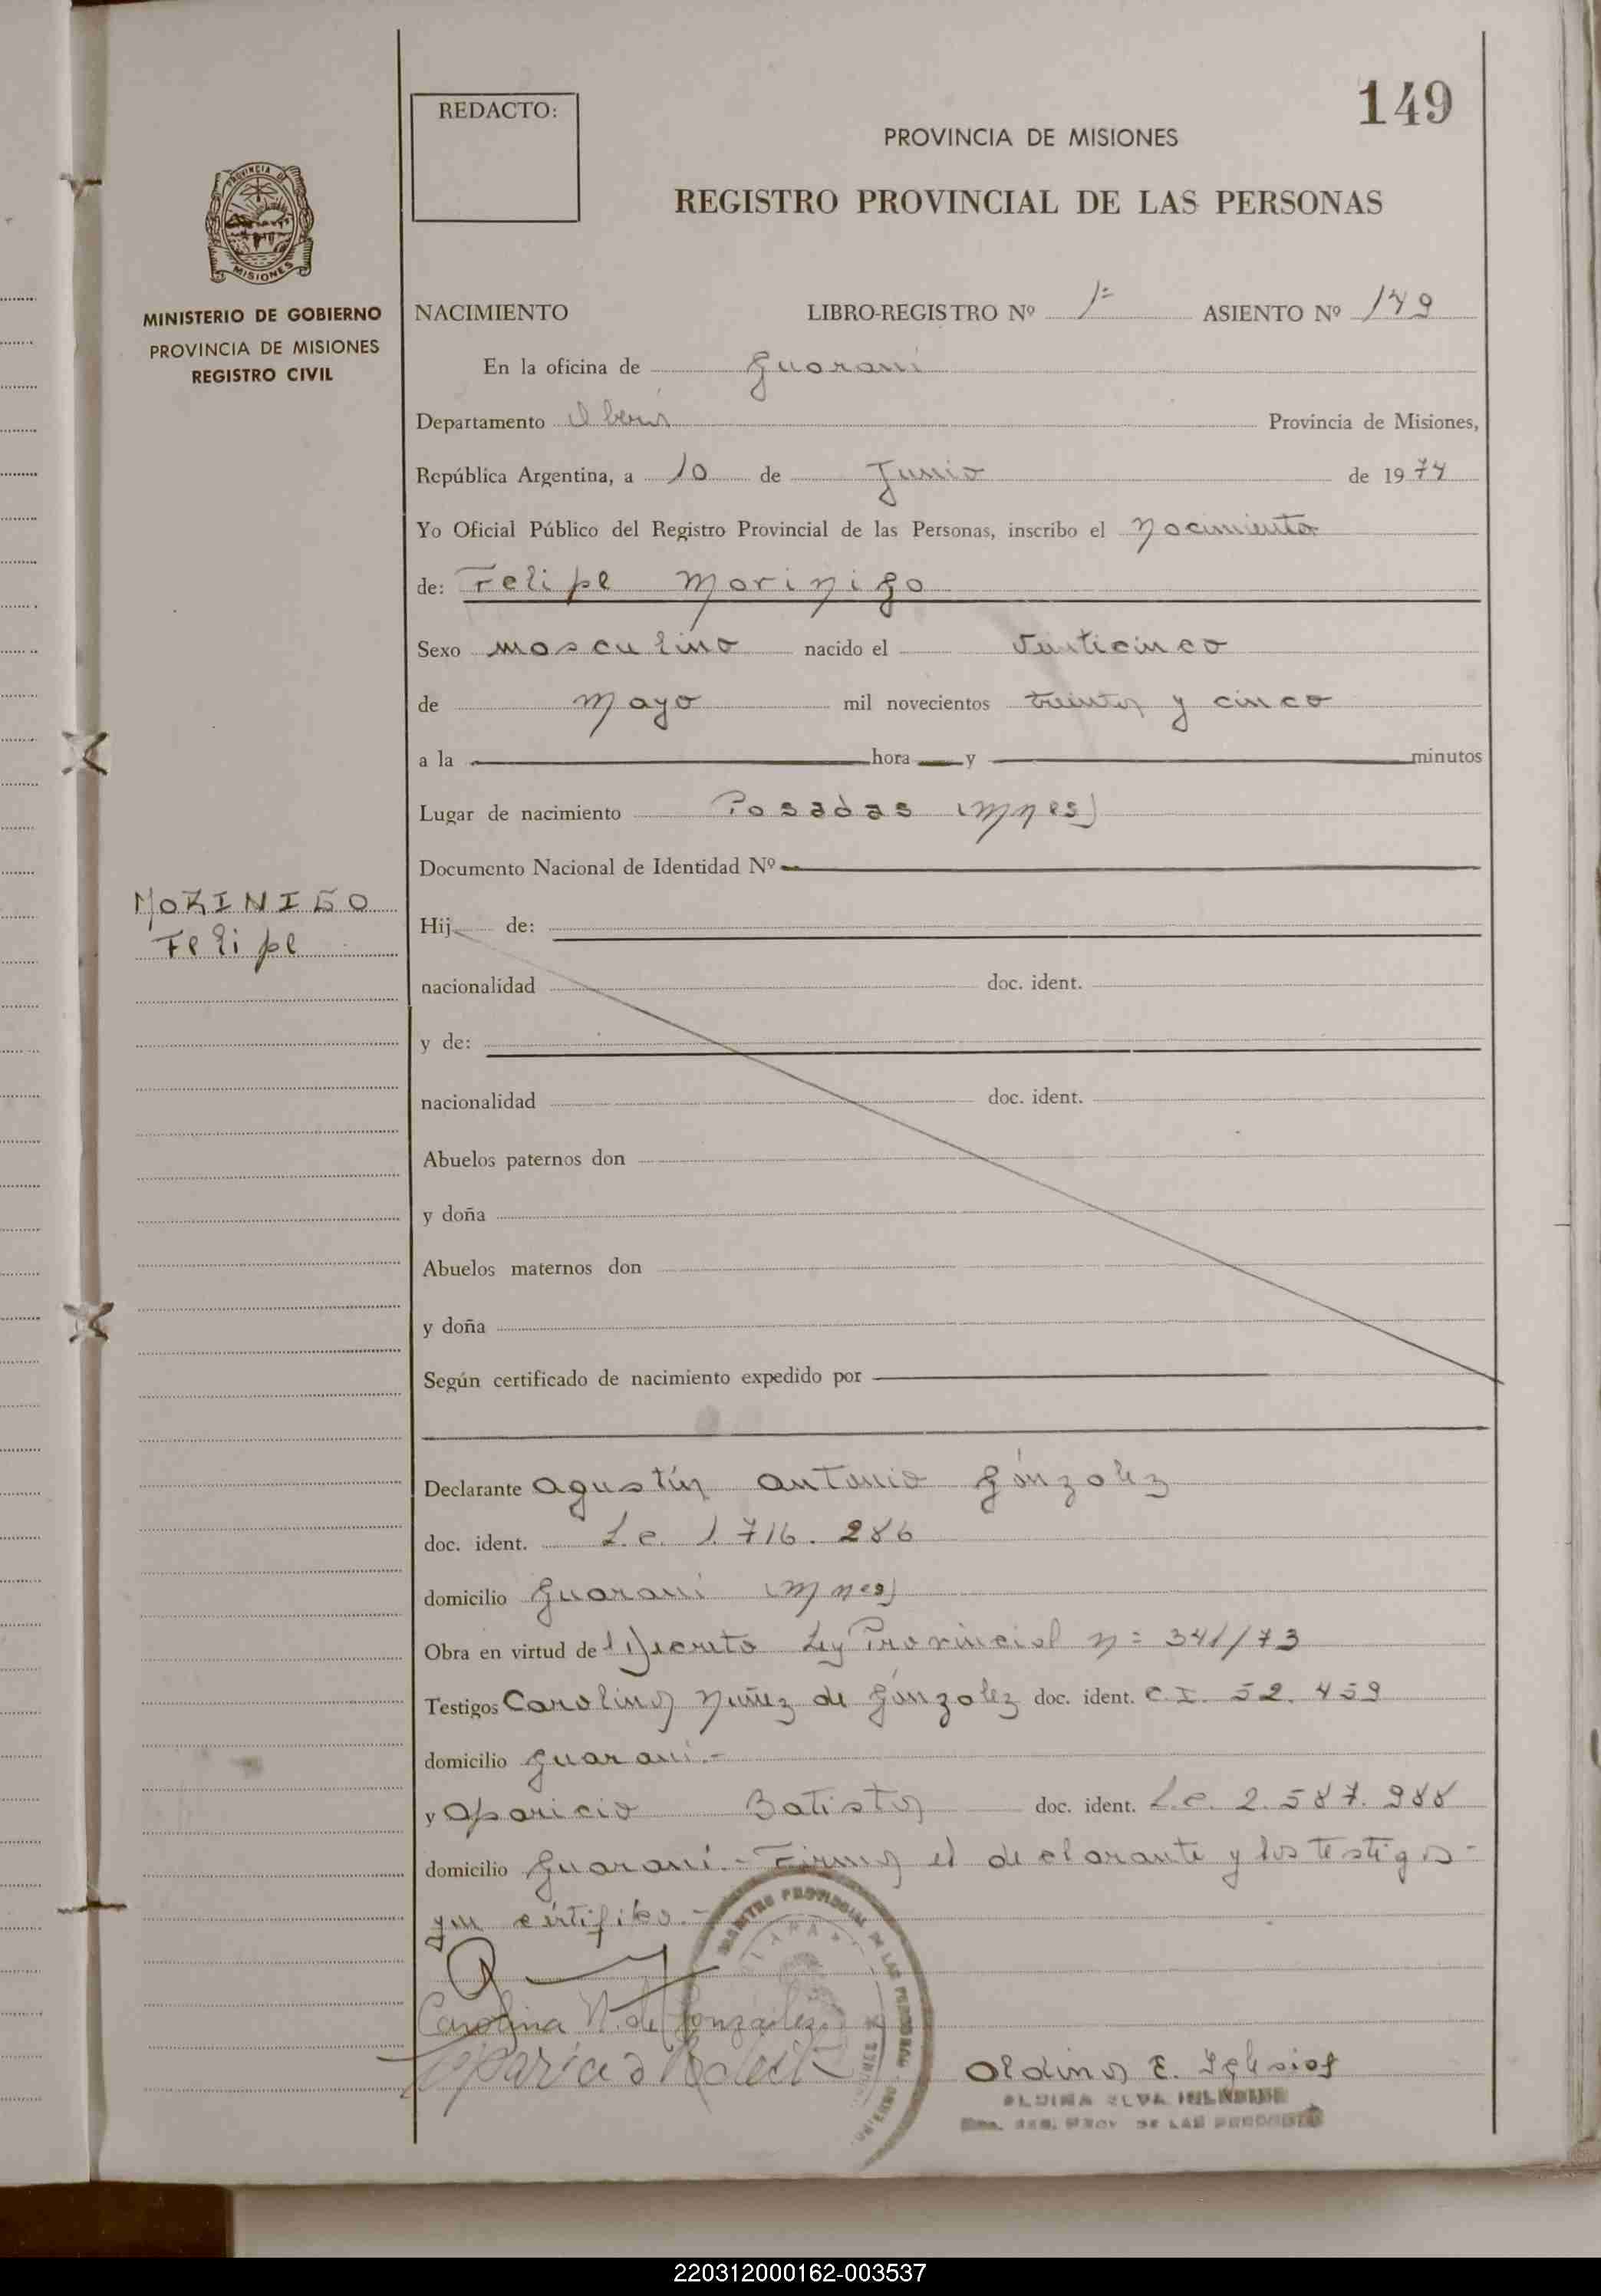 149
REDACTO:
PROVINCIA DE MISIONES
REGISTRO PROVINCIAL DE LAS PERSONAS
PROVINCIA DE
MISIONES
MINISTERIO DE GOBIERNO
PROVINCIA DE MISIONES
REGISTRO CIVIL
NACIMIENTO LIBRO-REGISTRO Nº 1º ASIENTO Nº 149
En la oficina de Guaraní
Departamento Oberá Provincia de Misiones,
República Argentina, a 10 de Junio de 1974
Yo Oficial Público del Registro Provincial de las Personas, inscribo el Nacimiento
de: Felipe Morinigo
Sexo masculino nacido el Veinticinco
de Mayo mil novecientos treinta y cinco
a la hora y minutos
Lugar de nacimiento Posadas (Mnes)
Documento Nacional de Identidad Nº
MORINIGO
Felipe
Hij de:
nacionalidad doc. ident.
y de:
nacionalidad doc. ident.
Abuelos paternos don
y doña
Abuelos maternos don
y doña
Según certificado de nacimiento expedido por
Declarante Agustín Antonio Gónzalez
doc. ident. L.e. 1.716.286
domicilio Guaraní (Mnes)
Obra en virtud de Decreto Ley Provincial n= 341/73
Testigos Carolina Nuñez de Gónzalez doc. ident. C.I. 52.459
domicilio Guaraní.-
y Aparicio Batista doc. ident. L.e. 2.587.988
domicilio Guaraní.- Firma el declarante y los testigos-
que certifiko.-
Carolina N. de Gonzalez
Aparicio Batista
Aldina E. Iglesias
220312000162-003537